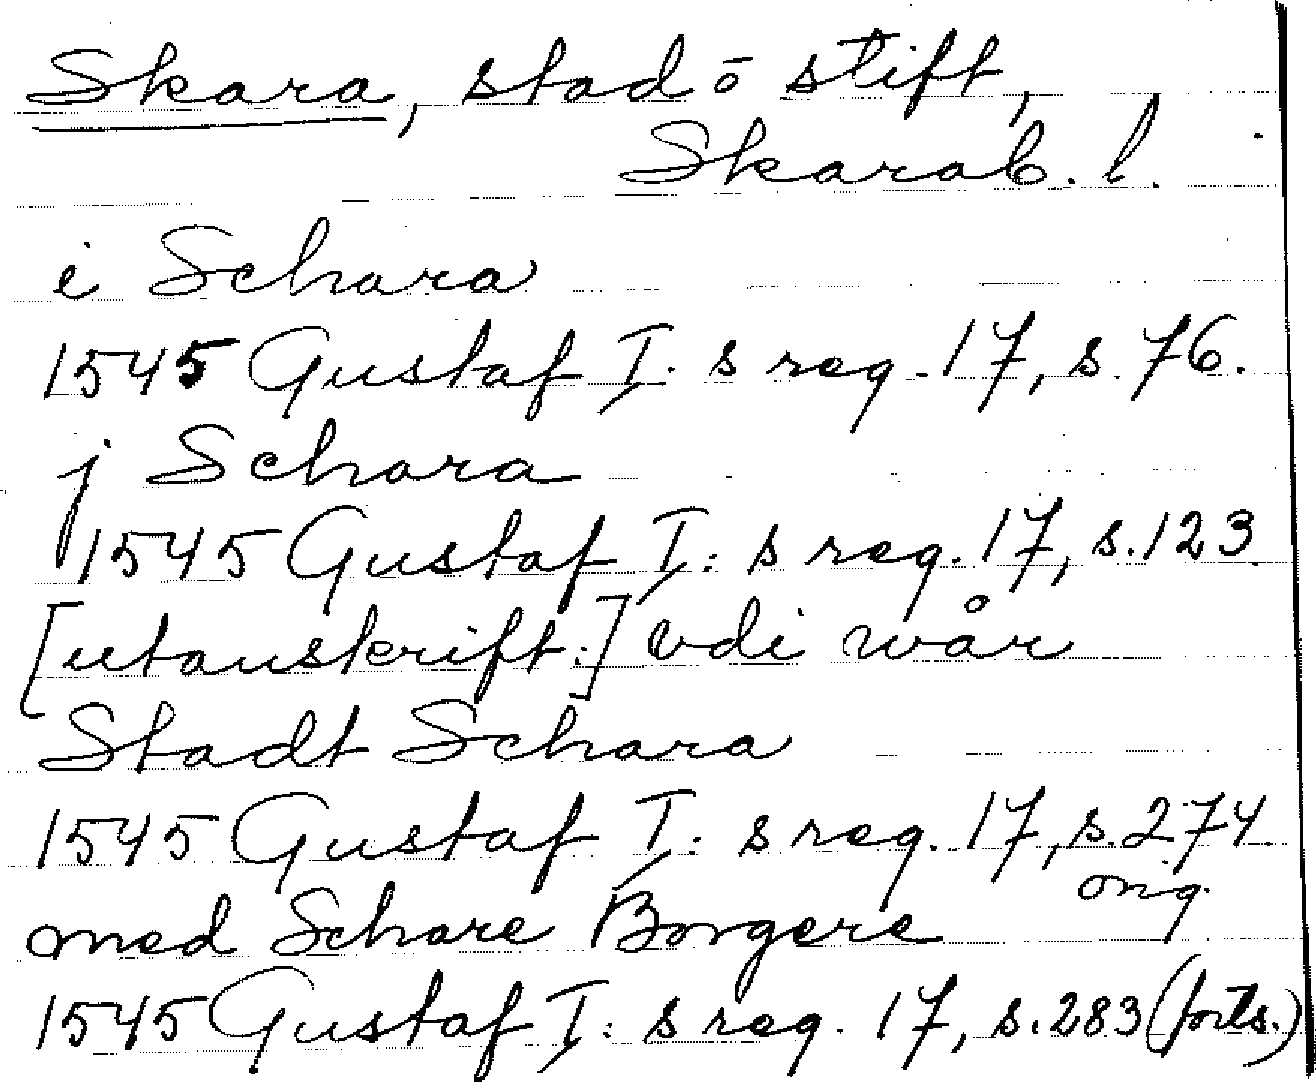 Skara, stad o stift,
Skarab. l.
i Schara
1545 Gustaf I: s reg. 17, s. 76.
j Schara
1545 Gustaf I: s reg. 17, s. 123
[utanskrift:] vdi wår
Stadt Schara
1545 Gustaf I: s reg. 17, s. 274
orig.
med Schare Borgere
1545 Gustaf I: s reg. 17, s. 283 (forts.)